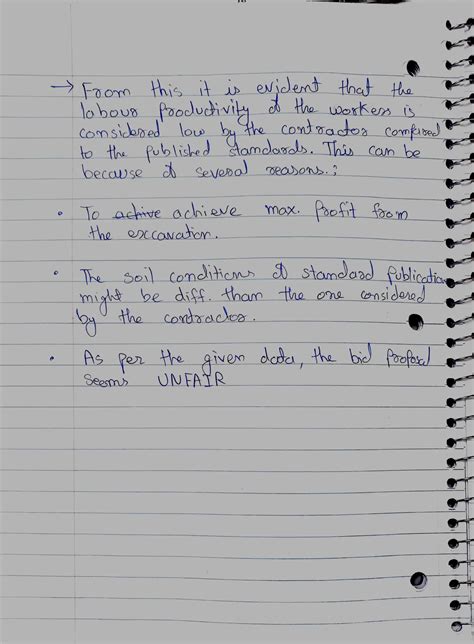 → From this it is evident that the
labour productivity of the workers is
considered low by the contractor compared
to the published standards. This can be
because of several reasons.:
• To achive achieve max. profit from
the excavation.
• The soil conditions of standard publication
might be diff. than the one considered
by the contractor.
• As per the given data, the bid proposal
seems UNFAIR